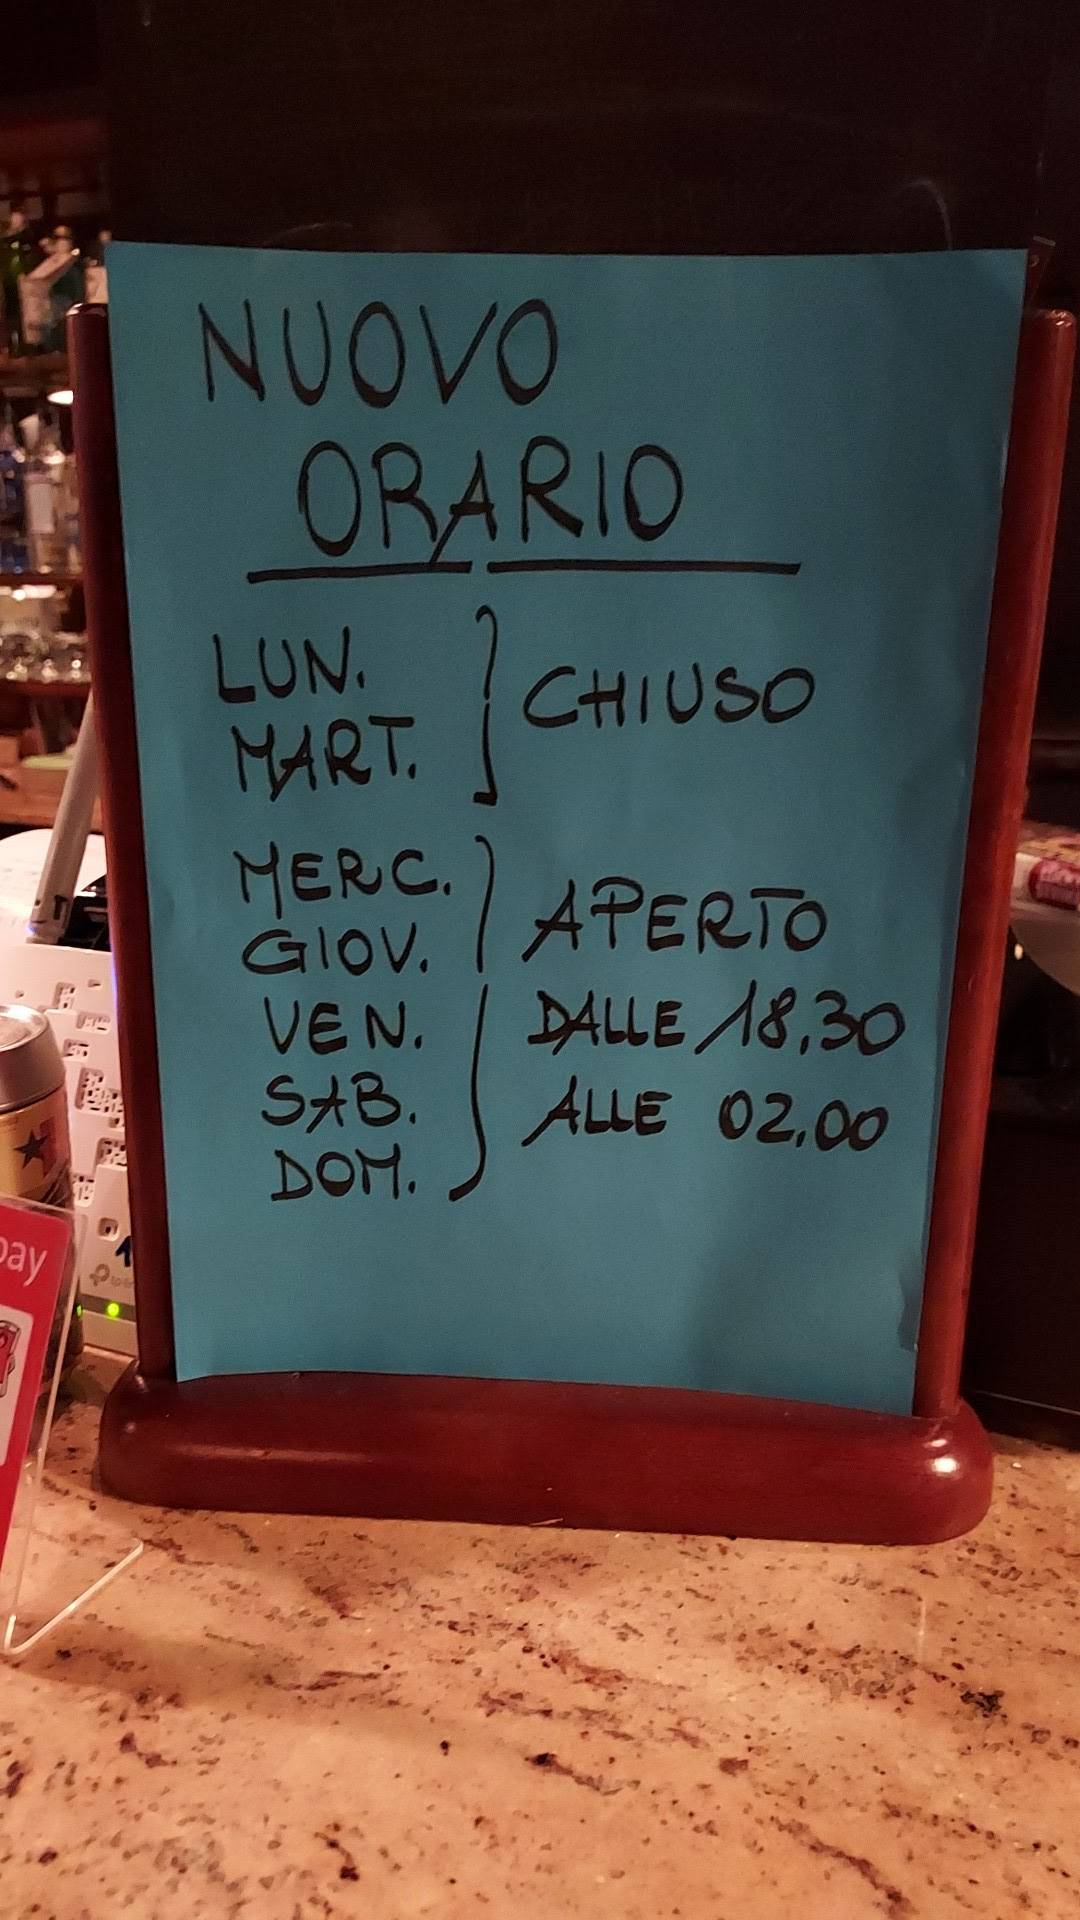 NUOVO
ORARIO
LUN.
MART.
CHIUSO
MERC.
GIOV.
VEN.
SAB.
DOM.
APERTO
DALLE 18.30
ALLE 02.00
pay
tp-link